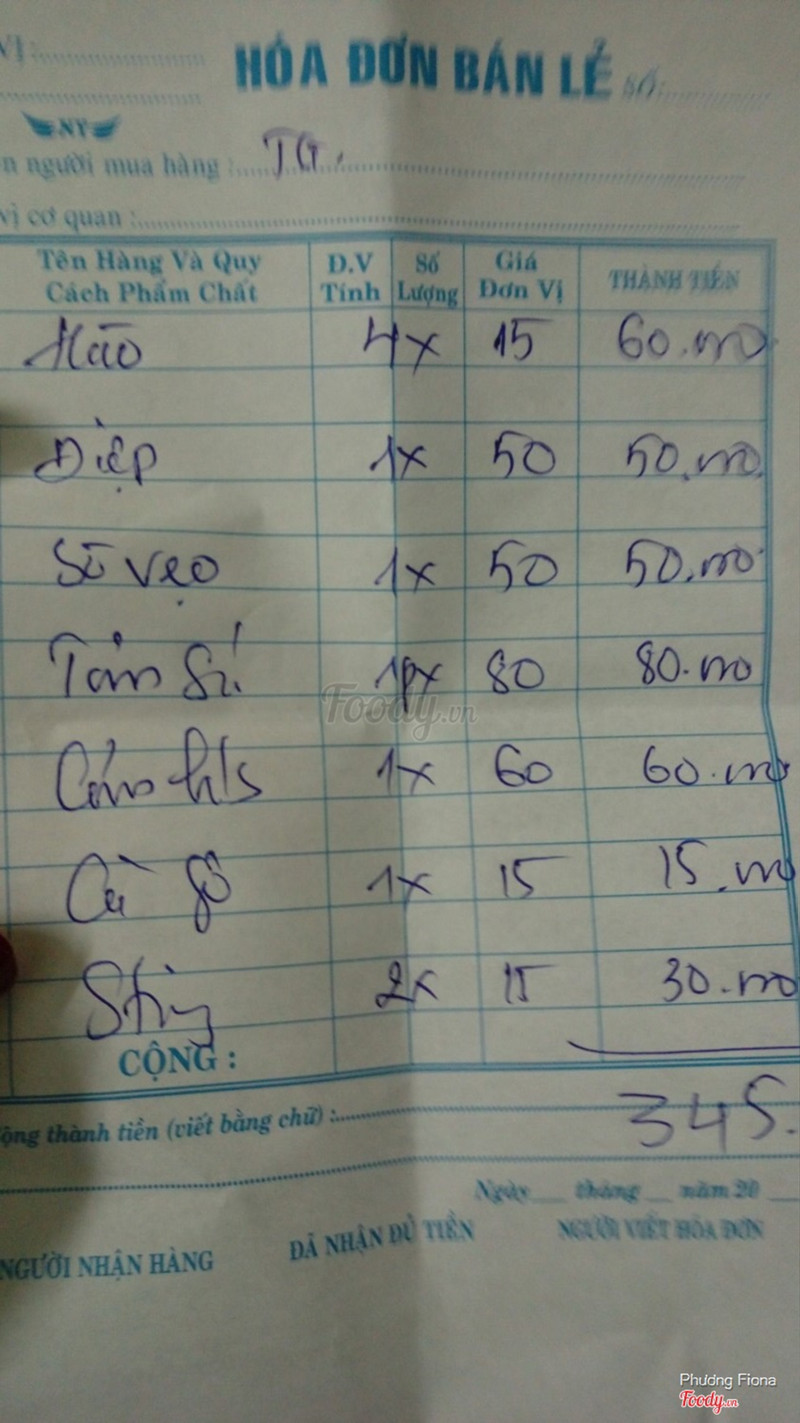 VỊ:
HÓA ĐƠN BÁN LẺ SỐ:
NT
n người mua hàng : TG.
vị cơ quan :
Tên Hàng Và Quy Cách Phẩm Chất Đ.V Tính Số Lượng Giá Đơn Vị THÀNH TIỀN
Hào 4x 15 60.000
Điệp 1x 50 50.000
Sò vẹo 1x 50 50.000
80 80.000
Cơm h/s 1x 60 60.000
1x 15 15.000
Sting 2x 15 30.000
CỘNG :
345.
Cộng thành tiền (viết bằng chữ) :
Ngày tháng năm 20
NGƯỜI NHẬN HÀNG ĐÃ NHẬN ĐỦ TIỀN NGƯỜI VIẾT HÓA ĐƠN
Foody.vn
Phương Fiona
Foody.vn